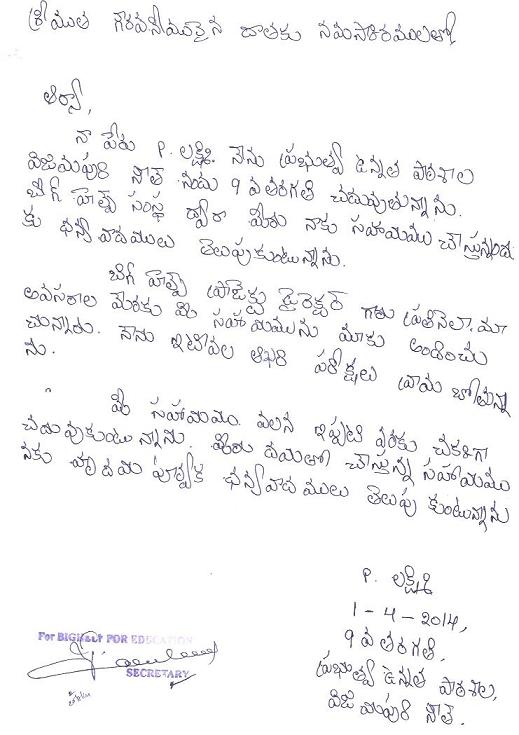 శ్రీయుత గౌరవనీయులైన దాతకు నమస్కారములతో
ఆర్యా,
నా పేరు P. లక్ష్మి. నేను ప్రభుత్వ ఉన్నత పాఠశాల
విజయపురి సౌత్ నందు 9 వ తరగతి చదువుతున్నాను.
బిగ్ హెల్ప్ సంస్థ ద్వారా మీరు నాకు సహాయము చేస్తున్నందు
కు ధన్యవాదములు తెలుపుకుంటున్నాను.
బిగ్ హెల్ప్ ప్రాజెక్టు డైరెక్టర్ గారు ప్రతినెలా మా
అవసరాల మేరకు మీ సహాయమును మాకు అందించు
చున్నారు. నేను ఇటీవల ఆఖరి పరీక్షలు వ్రాయ బోతున్నా
ను.
మీ సహాయం వలన ఇప్పటి వరకు చక్కగా
చదువుకుంటున్నాను. మీరు దయతో చేస్తున్న సహాయము
నకు హృదయ పూర్వక ధన్యవాదములు తెలుపు కుంటున్నాను
P. లక్ష్మి
1 - 4 - 2014,
9 వ తరగతి,
ప్రభుత్వ ఉన్నత పాఠశాల,
విజయపురి సౌత్.
For BIGHELP FOR EDUCATION
SECRETARY